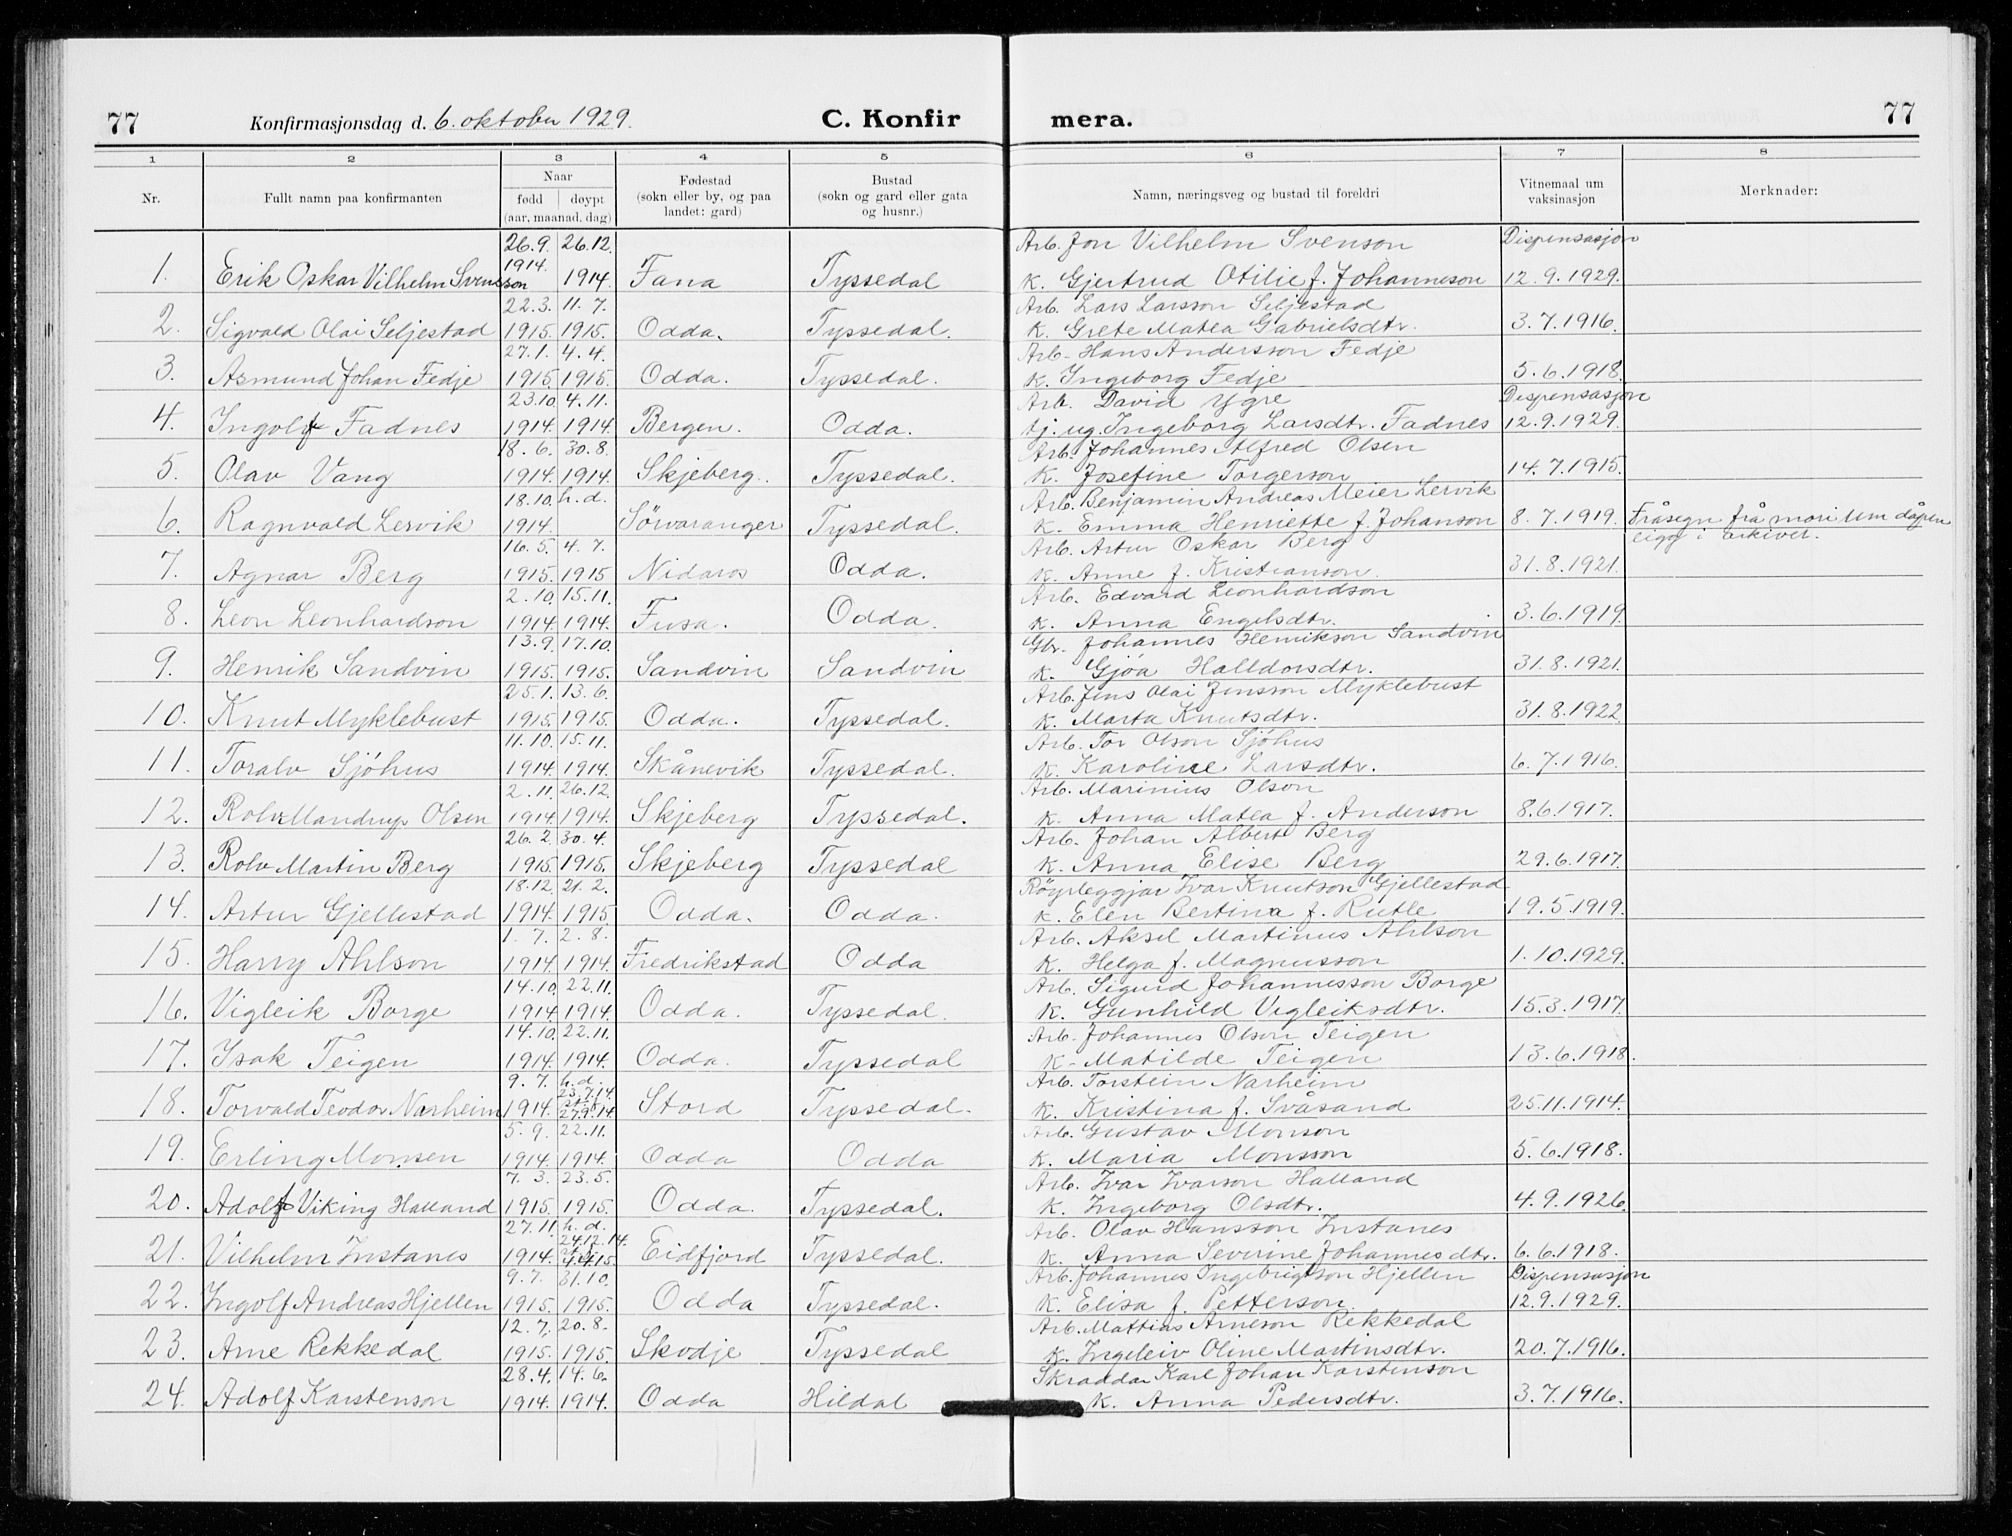 77 Konfirmasjonsdag d. 6. oktober 1929. C. Konfir mera. 77
1 2 3 4 5 6 7 8
Nr. Fullt namn paa konfirmanten Naar født døypt (aar, maanad, dag) Fødestad (sokn eller by, og paa landet: gard) Bustad (sokn og gard eller gata og husnr.) Namn, næringsveg og bustad til foreldri Vitnemaal um vaksinasjon Merknader:
26.9. 26.12. Arb. Jon Vilhelm Svenson Dispensasjon
1. Erik Oskar Vilhelm Svensson 1914. 1914. Fana Tyssedal K. Gjertrud Otilie f. Johanneson 12.9.1929.
22.3. 11.7. Arb. Lars Larsson Seljestad
2. Sigvald Olai Seljestad 1915. 1915. Odda. Tyssedal. K. Grete Matea Gabrielsdtr. 3.7.1916.
27.1. 4.4. Arb. Hans Andersson Fedje
3. Asmund Johan Fedje 1915. 1915. Odda. Tyssedal. K. Ingeborg Fedje 5.6.1918.
23.10. 4.11. Arb. David Ygre Dispensasjon
4. Ingolf Fadnes 1914. 1914. Bergen. Odda. tj. ug. Ingeborg Larsdtr. Fadnes 12.9.1929.
18.6. 30.8. Arb. Johannes Alfred Olsen
5. Olav Vang 1914. 1914. Skjeberg. Tyssedal. K. Josefine Torgerson 14.7.1915.
18.10. h.d. Arb. Benjamin Andreas Meier Lervik
6. Ragnvald Lervik 1914. Sörvaranger Tyssedal. K. Emma Henriette f. Johanson 8.7.1919. Fråsegn frå mori um dåpen
ligg i arkivet.
16.5. 4.7. Arb. Artur Oskar Berg
7. Agnar Berg 1915. 1915 Nidaros Odda. K. Anne f. Kristianson. 31.8.1921.
2.10. 15.11. Arb. Edvard Leonhardson
8. Leon Leonhardson 1914. 1914. Fusa. Odda. K. Anna Engelsdtr. 3.6.1919.
13.9. 17.10. Gbr. Johannes Henrikson Sandvin
9. Henrik Sandvin 1915. 1915. Sandvin Sandvin K. Gjøa Halldorsdtr. 31.8.1921.
25.1. 13.6. Arb. Jens Olai Jensson Myklebust
10. Knut Myklebust 1915. 1915. Odda. Tyssedal. K. Marta Knutsdtr. 31.8.1922
11.10. 15.11. Arb. Tor Olson Sjöhus
11. Toralv Sjöhus 1914. 1914. Skånevik Tyssedal. K. Karoline Larsdtr. 6.7.1916.
2.11. 26.12. Arb. Marinius Olson
12. Rolv Mandrup Olsen 1914. 1914. Skjeberg Tyssedal. K. Anna Matea f. Anderson 8.6.1917.
26.2. 30.4. Arb. Johan Albert Berg
13. Rolv Martin Berg 1915. 1915. Skjeberg Tyssedal K. Anna Elise Berg 29.6.1917.
18.12. 21.2. Röyrleggjar Ivar Knutson Gjellestad
14. Artur Gjellestad 1914. 1915 Odda. Odda. K. Elen Bertina f. Rutle 19.5.1919.
1.7. 2.8. Arb. Aksel Martinus Ahlson
15. Harry Ahlson 1914. 1914. Fredrikstad Odda K. Helga f. Magnusson 1.10.1929.
14.10. 22.11. Arb. Sigurd Johannesson Borge
16. Vigleik Borge 1914. 1914. Odda. Tyssedal. K. Gunhild Vigleiksdtr. 15.3.1917.
14.10. 22.11. Arb. Johannes Olson Teigen
17. Isak Teigen 1914. 1914. Odda. Tyssedal K. Matilde Teigen 13.6.1918.
9.7. h.d. 23.7.14. Arb. Torstein Narheim
18. Torvald Teodor Narheim 1914. 27.9.14 Stord Tyssedal. K. Kristina f. Svåsand 25.11.1914.
5.9. 22.11. Arb. Gustav Monson
19. Erling Monsen 1914. 1914. Odda Odda K. Maria Monsson 5.6.1918.
7.3. 23.5. Arb. Ivar Ivarson Halland
20. Adolf Viking Halland 1915. 1915. Odda. Tyssedal. K. Ingeborg Olsdtr. 4.9.1926.
27.11. h.d. 24.12.14. Arb. Olav Hansson Instanes
21. Vilhelm Instanes 1914. 4.4.15. Eidfjord Tyssedal. K. Anna Severine Johannesdtr. 6.6.1918.
9.7. 31.10. Arb. Johannes Ingebrigtson Hjellen Dispensasjon
22. Ingolf Andreas Hjellen 1915. 1915. Odda Tyssedal. K. Elisa f. Petterson. 12.9.1929.
12.7. 20.8. Arb. Mattias Arneson Rekkedal
23. Arne Rekkedal 1915. 1915. Skodje Tyssedal K. Ingeleiv Oline Martinsdtr. 20.7.1916.
28.4. 14.6. Skraddar Karl Johan Karstenson
24. Adolf Karstenson 1914. 1914. Odda Hildal K. Anna Pedersdtr. 3.7.1916.